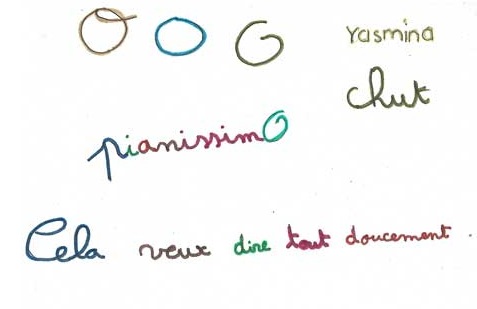 O O O Yasmina
chut
pianissimO
Cela veux dire tout doucement.